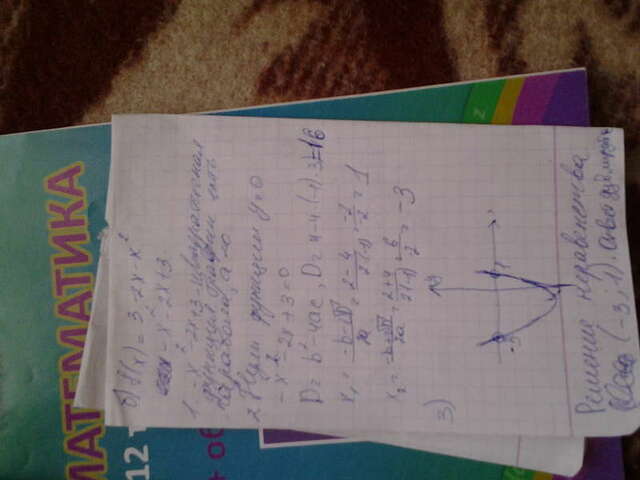 б) f(x) = 3 - 2x - x²
-x² - 2x + 3
1. -x² - 2x + 3 - квадратичная
функция, график есть
парабола, a < 0
2. Нули функции y=0
-x² - 2x + 3 = 0
D = b² - 4ac, D = 4 - 4·(-1)·3 = 16
x₁ = (-b-√D)/2a = (2-4)/(2(-1)) = -2/-2 = 1
x₂ = (-b+√D)/2a = (2+4)/(2(-1)) = 6/-2 = -3
3)
y
-3 1
Решения неравенства
(-3, 1).
МАТЕМАТИКА
12 т
+ об